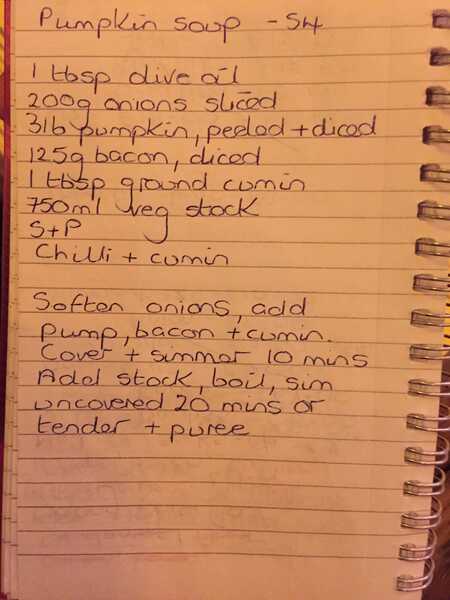 Pumpkin soup - S4
1 tbsp olive oil
200g onions sliced
3lb pumpkin, peeled + diced
125g bacon, diced
1 tbsp ground cumin
750ml veg stock
S+P
Chilli + cumin
Soften onions, add
pump, bacon + cumin.
Cover + simmer 10 mins
Add stock, boil, sim
uncovered 20 mins or
tender + puree